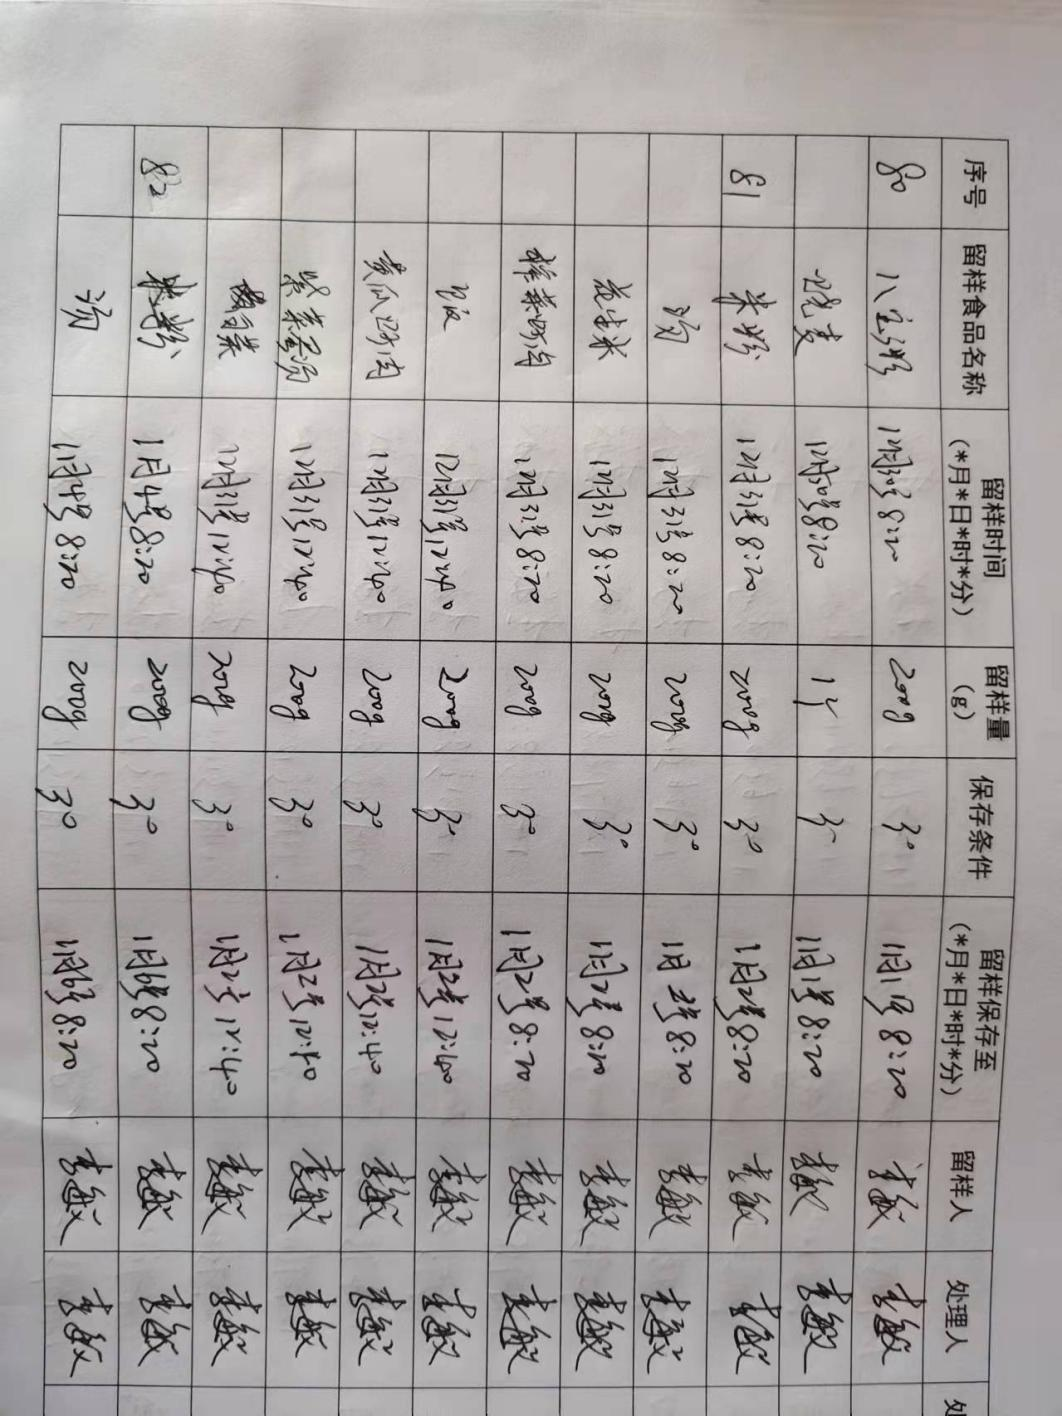 序号 留样食品名称 留样时间 (*月*日*时*分) 留样量 (g) 保存条件 留样保存至 (*月*日*时*分) 留样人 处理人
80 八宝粥 12月30号8:20 200g 3° 1月1号8:20 李敏 李敏
烧麦 12月30号8:20 1个 3° 1月1号8:20 李敏 李敏
81 米粉 12月31号8:20 200g 3° 1月2号8:20 李敏 李敏
12月31号8:20 200g 3° 1月2号8:20 李敏 李敏
花生米 12月31号8:20 200g 3° 1月2号8:20 李敏 李敏
榨菜炒肉 12月31号8:20 200g 3° 1月2号8:20 李敏 李敏
12月31号12:40 200g 3° 1月2号12:40 李敏 李敏
黄瓜炒肉 12月31号12:40 200g 3° 1月2号12:40 李敏 李敏
紫菜蛋汤 12月31号12:40 200g 3° 1月2号12:40 李敏 李敏
12月31号12:40 200g 3° 1月2号12:40 李敏 李敏
82 米粉 1月4号8:20 200g 3° 1月6号8:20 李敏 李敏
1月4号8:20 200g 3° 1月6号8:20 李敏 李敏